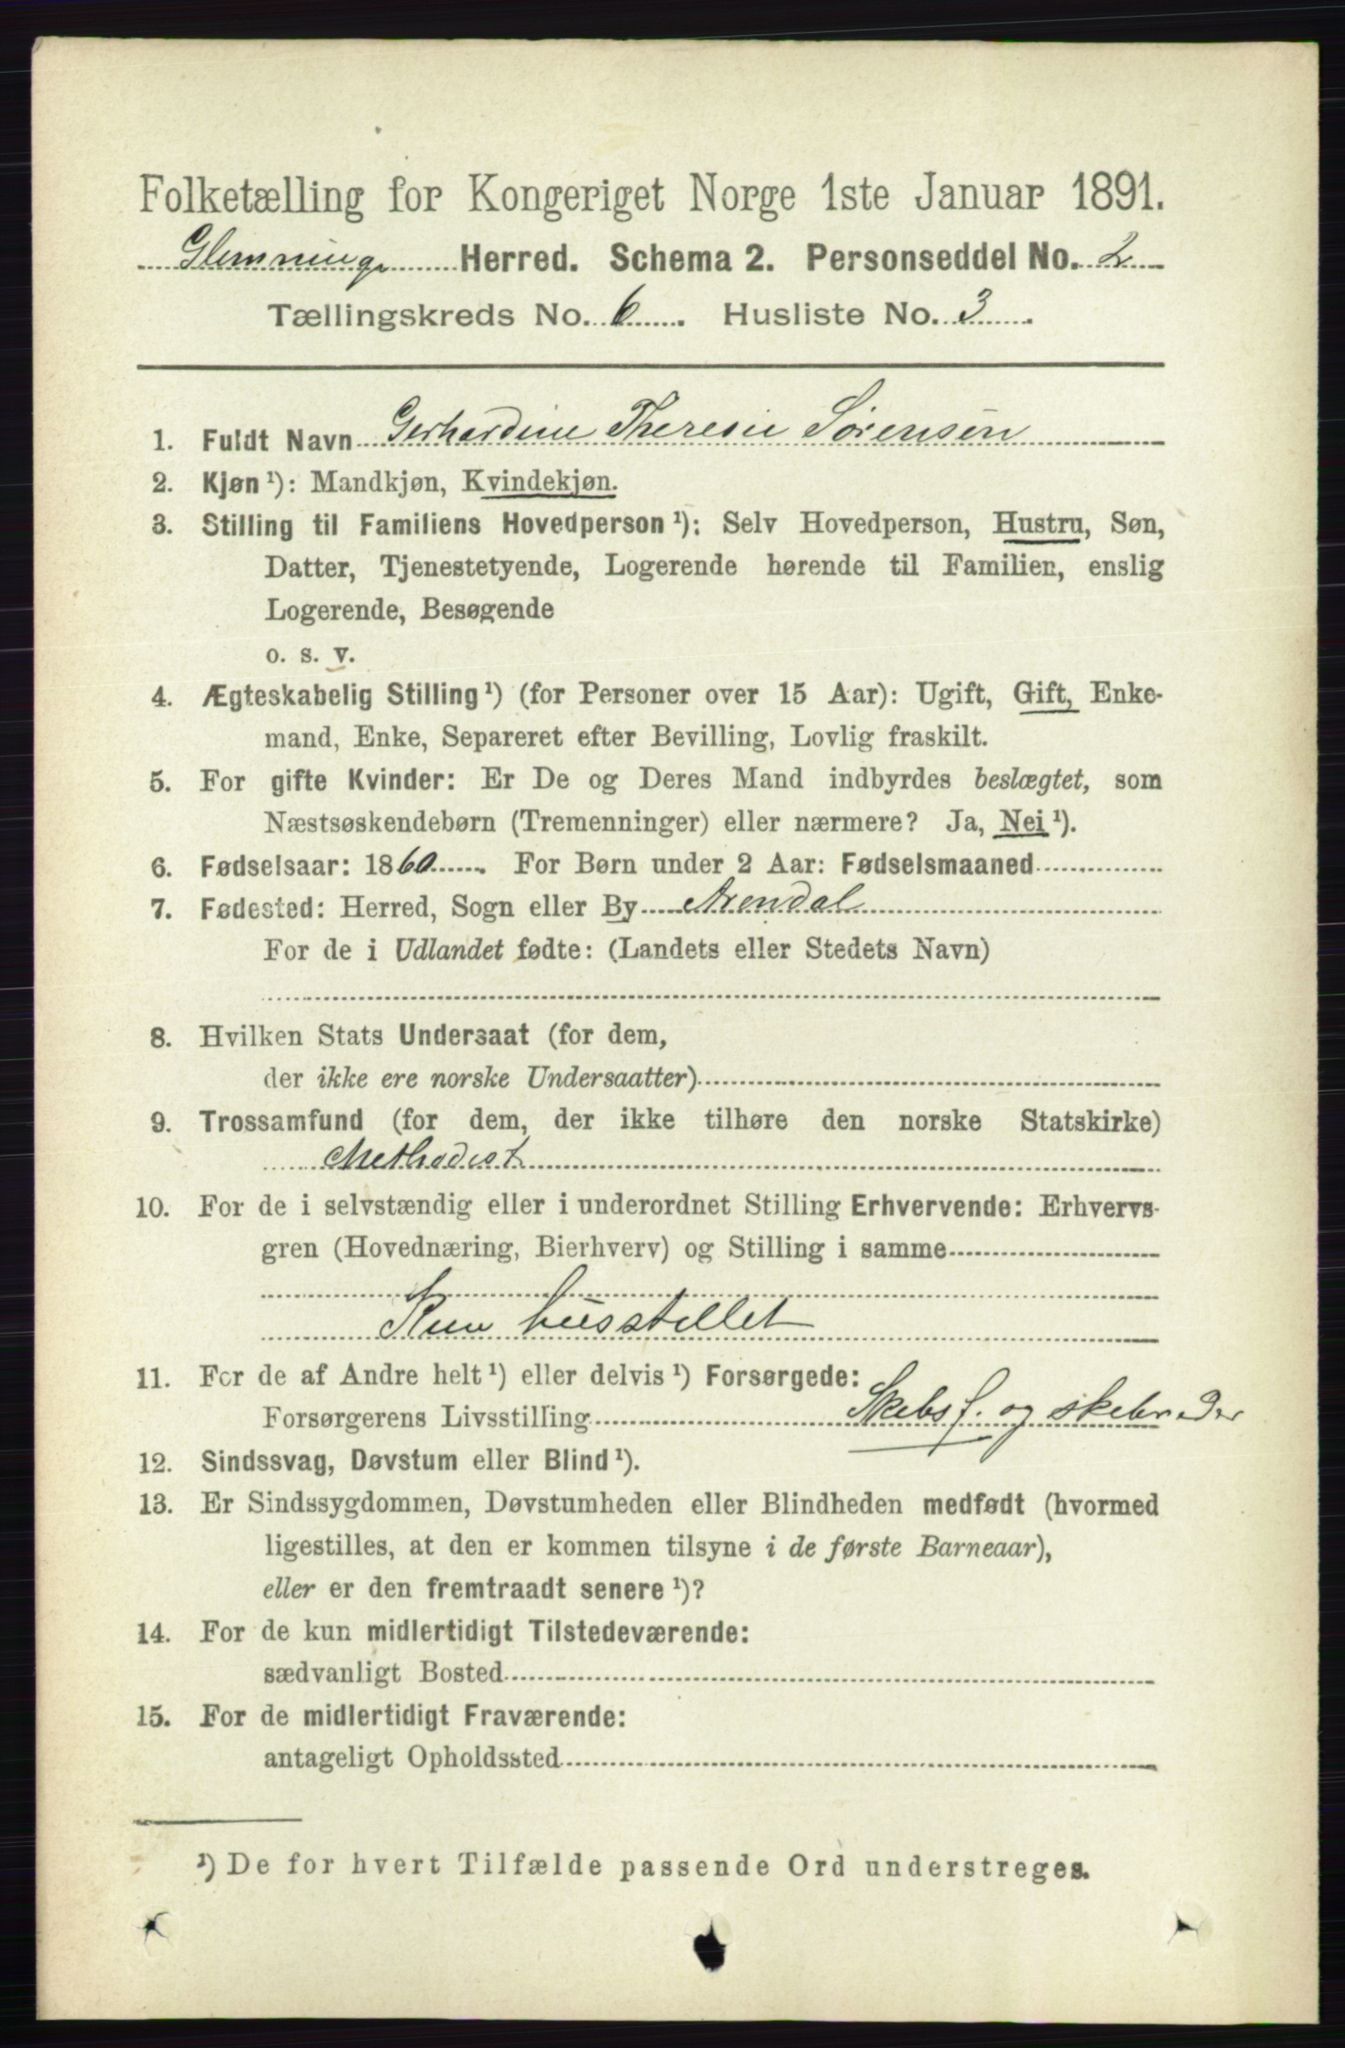 Folketælling for Kongeriget Norge 1ste Januar 1891.
Glemminge Herred. Schema 2. Personseddel No. 2
Tællingskreds No. 6. Husliste No. 3.
1. Fuldt Navn Gerhardine Theresie Sørensen
2. Kjøn ¹): Mandkjøn, Kvindekjøn.
3. Stilling til Familiens Hovedperson ¹): Selv Hovedperson, Hustru, Søn,
Datter, Tjenestetyende, Logerende hørende til Familien, enslig
Logerende, Besøgende
o. s. v.
4. Ægteskabelig Stilling ¹) (for Personer over 15 Aar): Ugift, Gift, Enke-
mand, Enke, Separeret efter Bevilling, Lovlig fraskilt.
5. For gifte Kvinder: Er De og Deres Mand indbyrdes beslægtet, som
Næstsøskendebørn (Tremenninger) eller nærmere? Ja, Nei ¹).
6. Fødselsaar: 1860. For Børn under 2 Aar: Fødselsmaaned
7. Fødested: Herred, Sogn eller By Arendal
For de i Udlandet fødte: (Landets eller Stedets Navn)
8. Hvilken Stats Undersaat (for dem,
der ikke ere norske Undersaatter)
9. Trossamfund (for dem, der ikke tilhøre den norske Statskirke)
Methodist
10. For de i selvstændig eller i underordnet Stilling Erhvervende: Erhvervs-
gren (Hovednæring, Bierhverv) og Stilling i samme
Kun husstellet
11. For de af Andre helt ¹) eller delvis ¹) Forsørgede:
Forsørgerens Livsstilling Skebsf. og skebsreder
12. Sindssvag, Døvstum eller Blind ¹).
13. Er Sindssygdommen, Døvstumheden eller Blindheden medfødt (hvormed
ligestilles, at den er kommen tilsyne i de første Barneaar),
eller er den fremtraadt senere ¹)?
14. For de kun midlertidigt Tilstedeværende:
sædvanligt Bosted
15. For de midlertidigt Fraværende:
antageligt Opholdssted
¹) De for hvert Tilfælde passende Ord understreges.